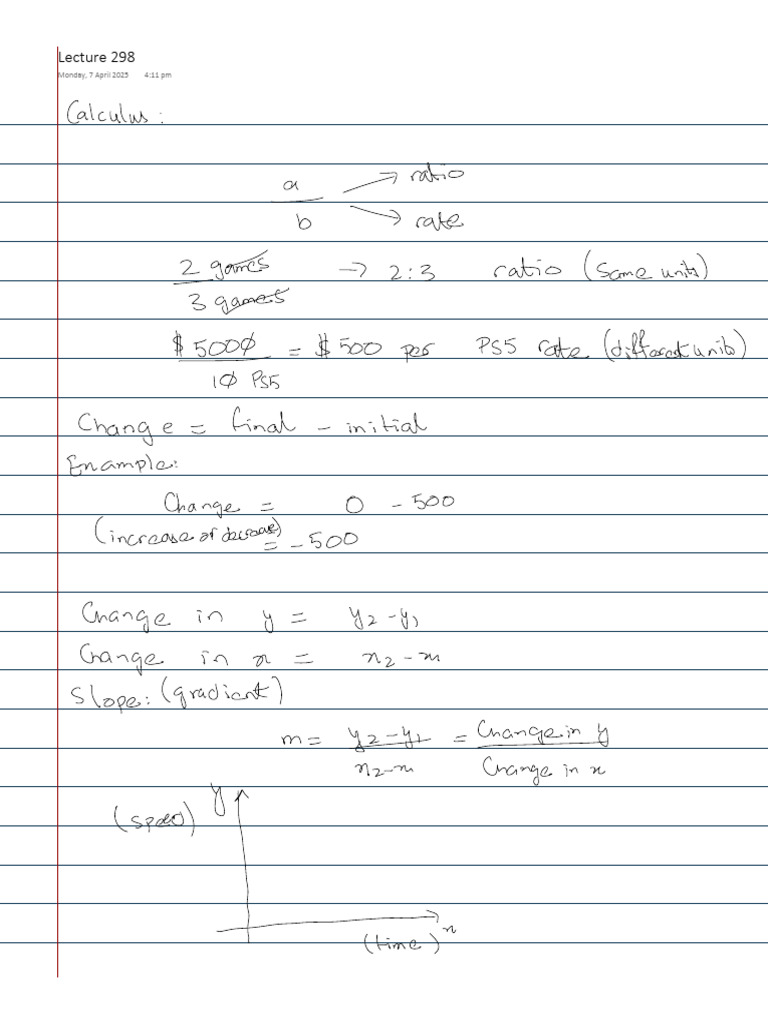 Lecture 298
Monday, 7 April 2025 4:11 pm
Calculus:
a → ratio
b → rate
2 games → 2:3 ratio (Same units)
3 games
$ 5000 = $ 500 per PS5 rate (different units)
10 PS5
Change = final - initial
Example:
Change = 0 - 500
(increase or decrease)
= - 500
Change in y = y₂ - y₁
Change in x = x₂ - x₁
Slope: (gradient)
m = y₂ - y₁ = Change in y
x₂ - x₁ Change in x
y
(speed)
x
(time)